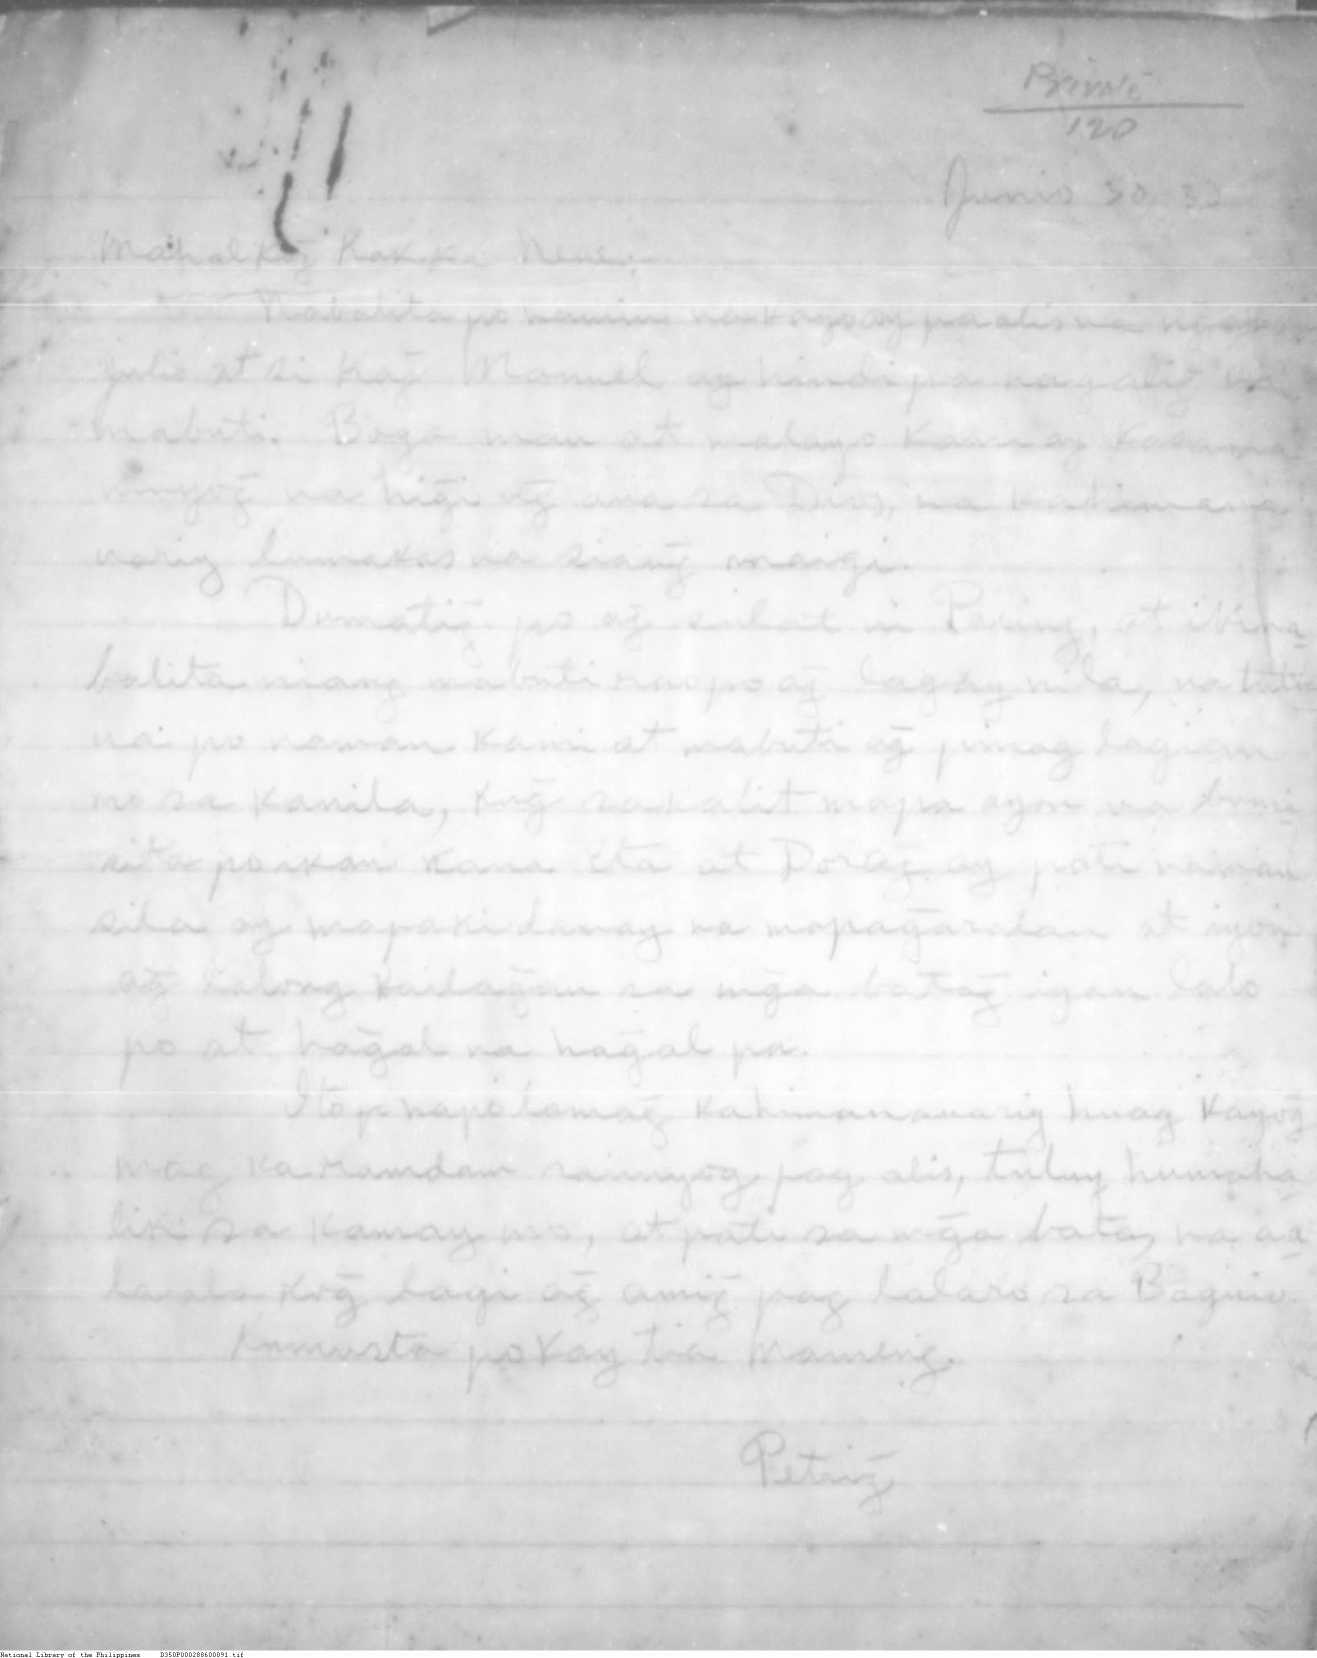 120
Junio 30, 32
Mahal kog̃ Kakka Nene:
Nabalita po namin na kayo ay paalis na ngayon
Julio at si Kag̃ Manuel ay hindi pa nagalig̃ na
mabuti. Baga man at malayo kami ay kasama
ninyog̃ na hig̃i ag̃ awa sa Dios, na kahimana
nariy lumakas na siang̃ maigi.
Dumatig̃ po ag̃ sulat ni Pering, at ibina
balita niang mabuti rao po ag̃ lagay nila, na tutua
na po naman kami at mabuti ag̃ pinag lagian
mo sa kanila, kog̃ sakalit mapa ayon na bumi
sita po ikao kana Ita at Dorag̃ ay pati naman
sila ay mapakidamay na mapag̃aralan at iyon
ag̃ kailag̃an sa mg̃a batag̃ igan lalo
po at hag̃al na hag̃al pa.
Ito po napo lamag̃ kahimanauariy huag kayog̃
mag ka ramdam sa inyog pag alis, tuluy humaha
lik sa kamay mo, at pati sa mg̃a bata, na aa
laala kog̃ lagi ag̃ amig̃ pag lalaro sa Baguio.
kumusta po kay tia Mameng.
Petrig̃
National Library of the Philippines D350P000288600891.tif